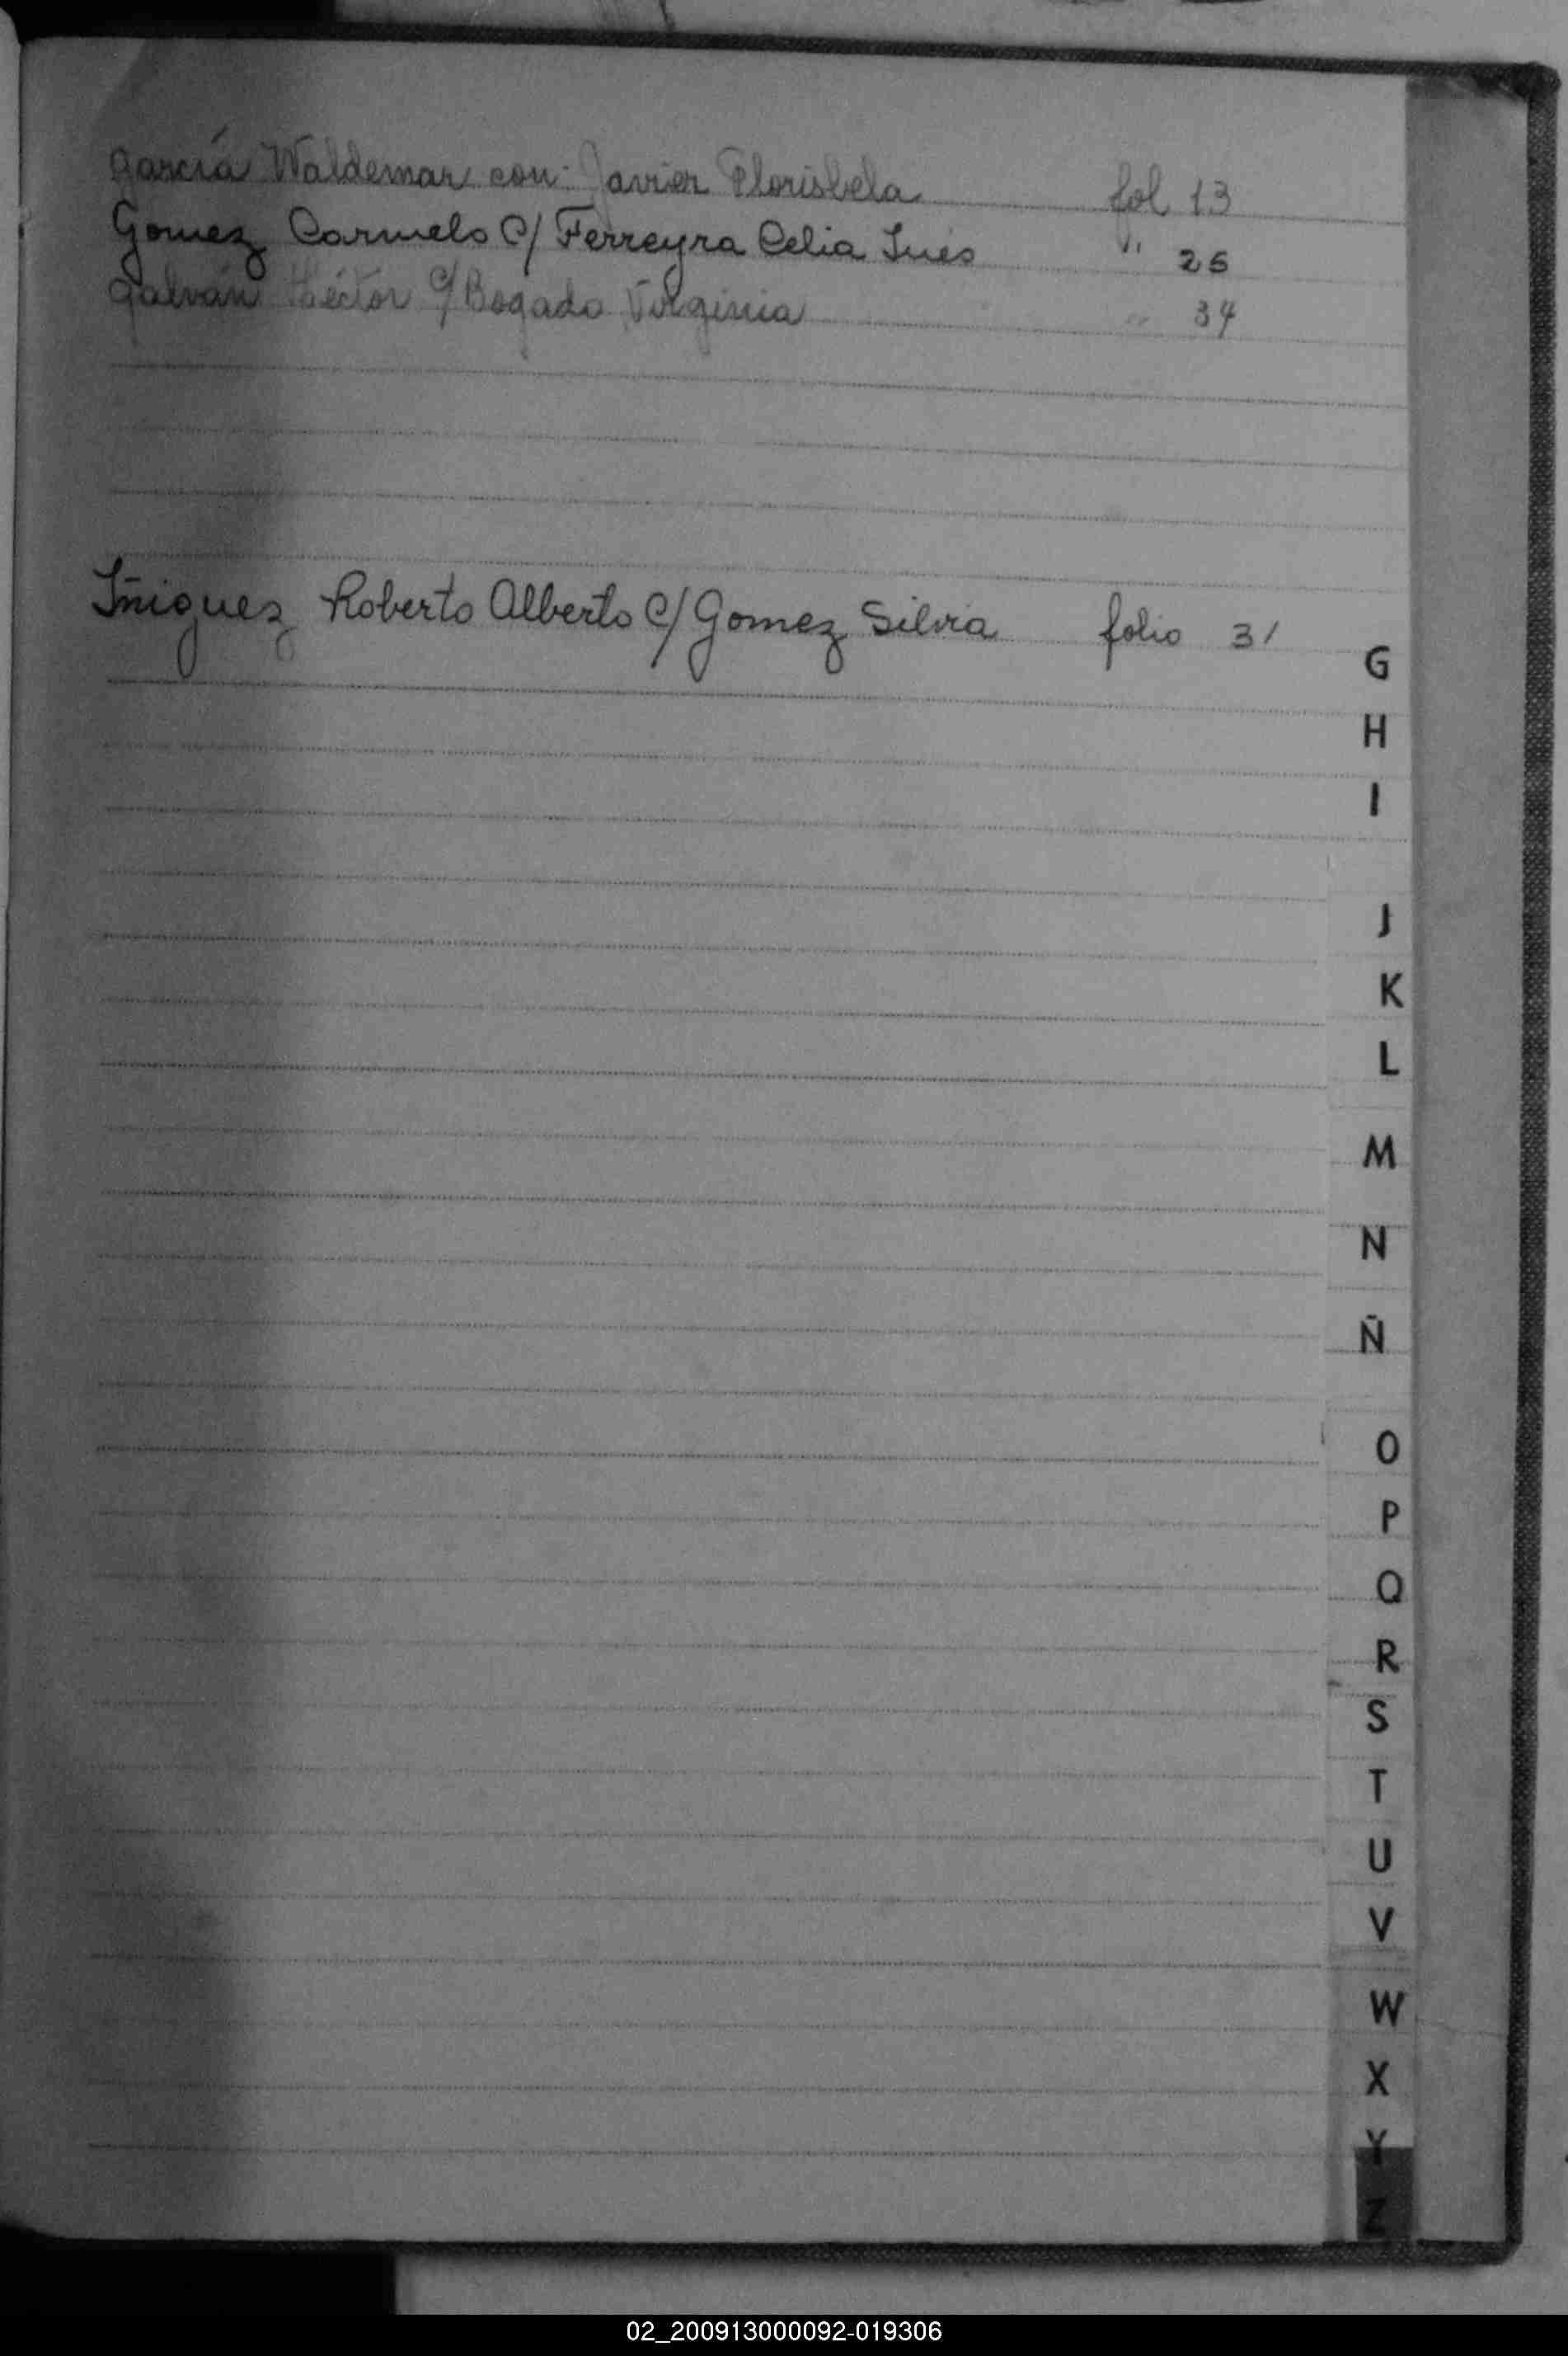 García Waldemar con: Javier Florisbela fol 13
Gomez Carmelo C/ Ferreyra Celia Inés " 25
Galván Héctor C/ Bogado Virginia " 34
Iñiguez Roberto Alberto C/ Gomez Silvia folio 31
G
H
I
J
K
L
M
N
Ñ
O
P
Q
R
S
T
U
V
W
X
Y
Z
02_200913000092-019306